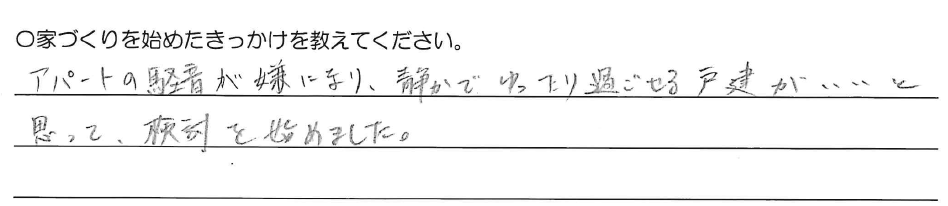 〇家づくりを始めたきっかけを教えてください。
アパートの騒音が嫌になり、静かでゆったり過ごせる戸建が‥‥と
思って、検討を始めました。